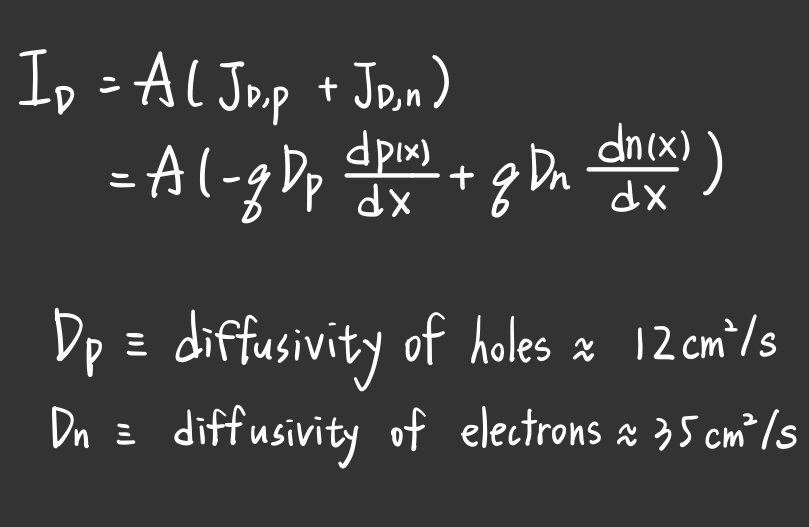 I_D = A(J_D,p + J_D,n)
= A(-qD_p dp(x)/dx + qD_n dn(x)/dx)
D_p ≡ diffusivity of holes ≈ 12 cm²/s
D_n ≡ diffusivity of electrons ≈ 35 cm²/s